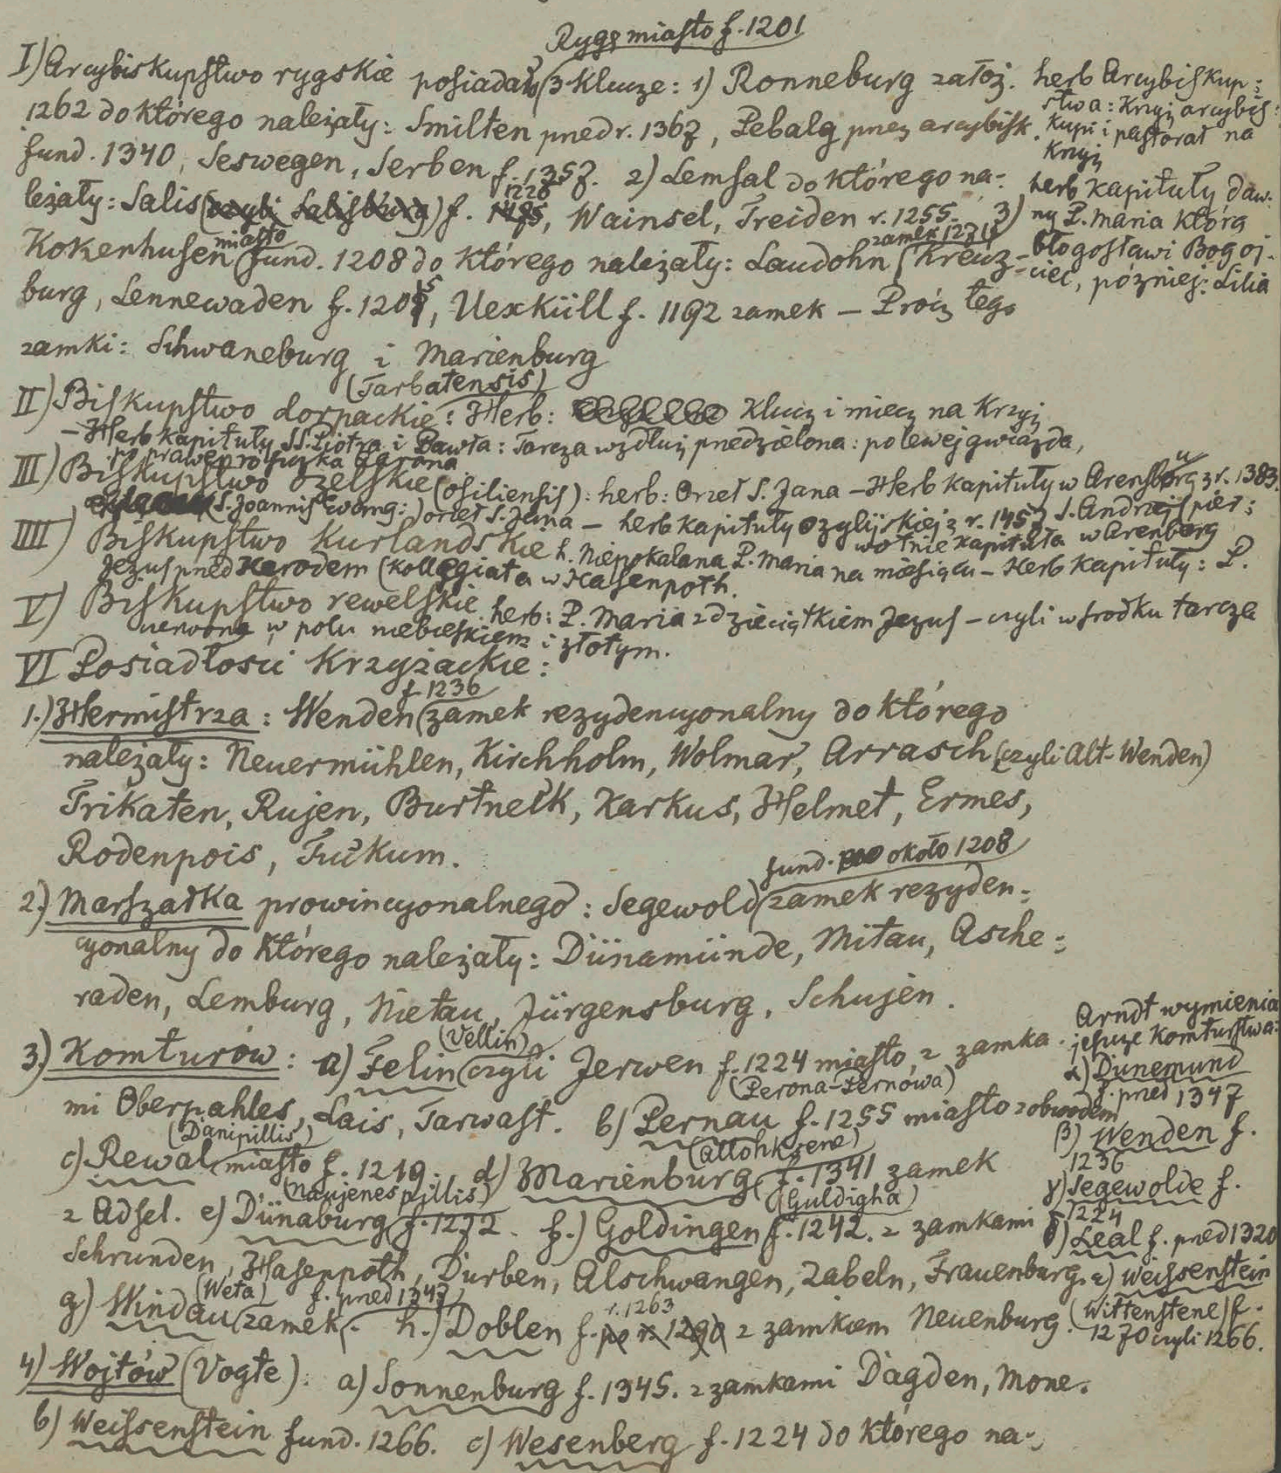 Rygę miasto f. 1201
I) Arcybiskupstwo rygskie posiadało 3 klucze: 1) Ronneburg założ.
1262 do którego należały: Smilten przed r. 1367, Pebalg przez arcybisk.
fund. 1340, Seswegen, Serben f. 1357. 2) Lemsal do którego na-
1228
leżały: Salis (czyli Salisburg) f. 1485, Wainsel, Treiden r. 1255. 3)
miasto zamek 1271
Kokenhusen fund. 1208 do którego należały: Laudohn, Kreuz-
burg, Lennewaden f. 1205, Uexküll f. 1192 zamek – Prócz tego
zamki: Schwaneburg i Marienburg
herb Arcybiskup-
stwa: Krzyż arcybis-
kupi i pastorał na
Krzyż
herb kapituły daw-
ny P. Maria którą
błogosławi Bogoj-
ciec, później: Lilia
(Tarbatensis)
II) Biskupstwo dorpackie: Herb: Klucz i miecz na Krzyż
– Herb kapituły SS. Piotra i Pawła: Tarcza wzdłuż przedzielona: po lewej gwiazda,
III) Biskupstwo ozelskie (osiliensis): herb: Orzeł S. Jana – Herb kapituły w Arensburg z r. 1383.
(S. Joannis Evang:) orzeł S. Jana – herb kapituły ozylijskiej z r. 1457 S. Andrzej (pier-
wotnie kapituła w Arenberg
IIII) Biskupstwo Kurlandskie h. Niepokalana P. Maria na miesiącu – Herb Kapituły: P.
Jezus przed Herodem (Kollegiata w Hasenpoth.
V) Biskupstwo rewelskie herb: P. Maria z dzieciątkiem Jezus – czyli w środku tarcza
czerwona w polu niebieskiem i złotym.
VI Posiadłości Krzyżackie:
f. 1236
1.) Hermistrza: Wenden (zamek rezydencyonalny do którego
należały: Neuermühlen, Kirchholm, Wolmar, Arrasch (czyli Alt-Wenden)
Trikaten, Rujen, Burtneck, Karkus, Helmet, Ermes,
Rodenpois, Tuckum.
fund. około 1208
2.) Marszałka prowincyonalnego: Segewold (zamek rezyden-
cyonalny do którego należały: Dünamünde, Mitau, Asche-
raden, Lemburg, Nietau, Jürgensburg, Schujen.
(Vellin)
3.) Komturów: a) Felin czyli Jerwen f. 1224 miasto, z zamka-
(Perona-Pernowa)
mi Oberpahles, Lais, Tarwast. b) Pernau f. 1255 miasto z obwodem
(Danipillis) (Allohksene)
c) Rewal miasto f. 1219. d) Marienburg f. 1341 zamek
(Naujenespillis) (Guldigha)
z Adsel. e) Dünaburg f. 1272. f.) Goldingen f. 1242. z zamkami
Schrunden, Hasenpoth, Durben, Alschwangen, Zabeln, Frauenburg.
(Weta) f. przed 1347 r. 1263
g) Windau (zamek. h.) Doblen f. po r. 1290 z zamkiem Neuenburg.
Arndt wymienia
jeszcze Komturstwa:
α) Dünemund
f. przed 1347
β) Wenden f.
1236
γ) Segewolde f.
1224
δ) Leal f. przed 1320
ε) Weissenstein
(Wittenstene) f.
1270 czyli 1266.
4) Wojtów (Vogte): a) Sonnenburg f. 1345. z zamkami Dagden, Mone.
b) Weissenstein fund. 1266. c) Wesenberg f. 1224 do którego na-